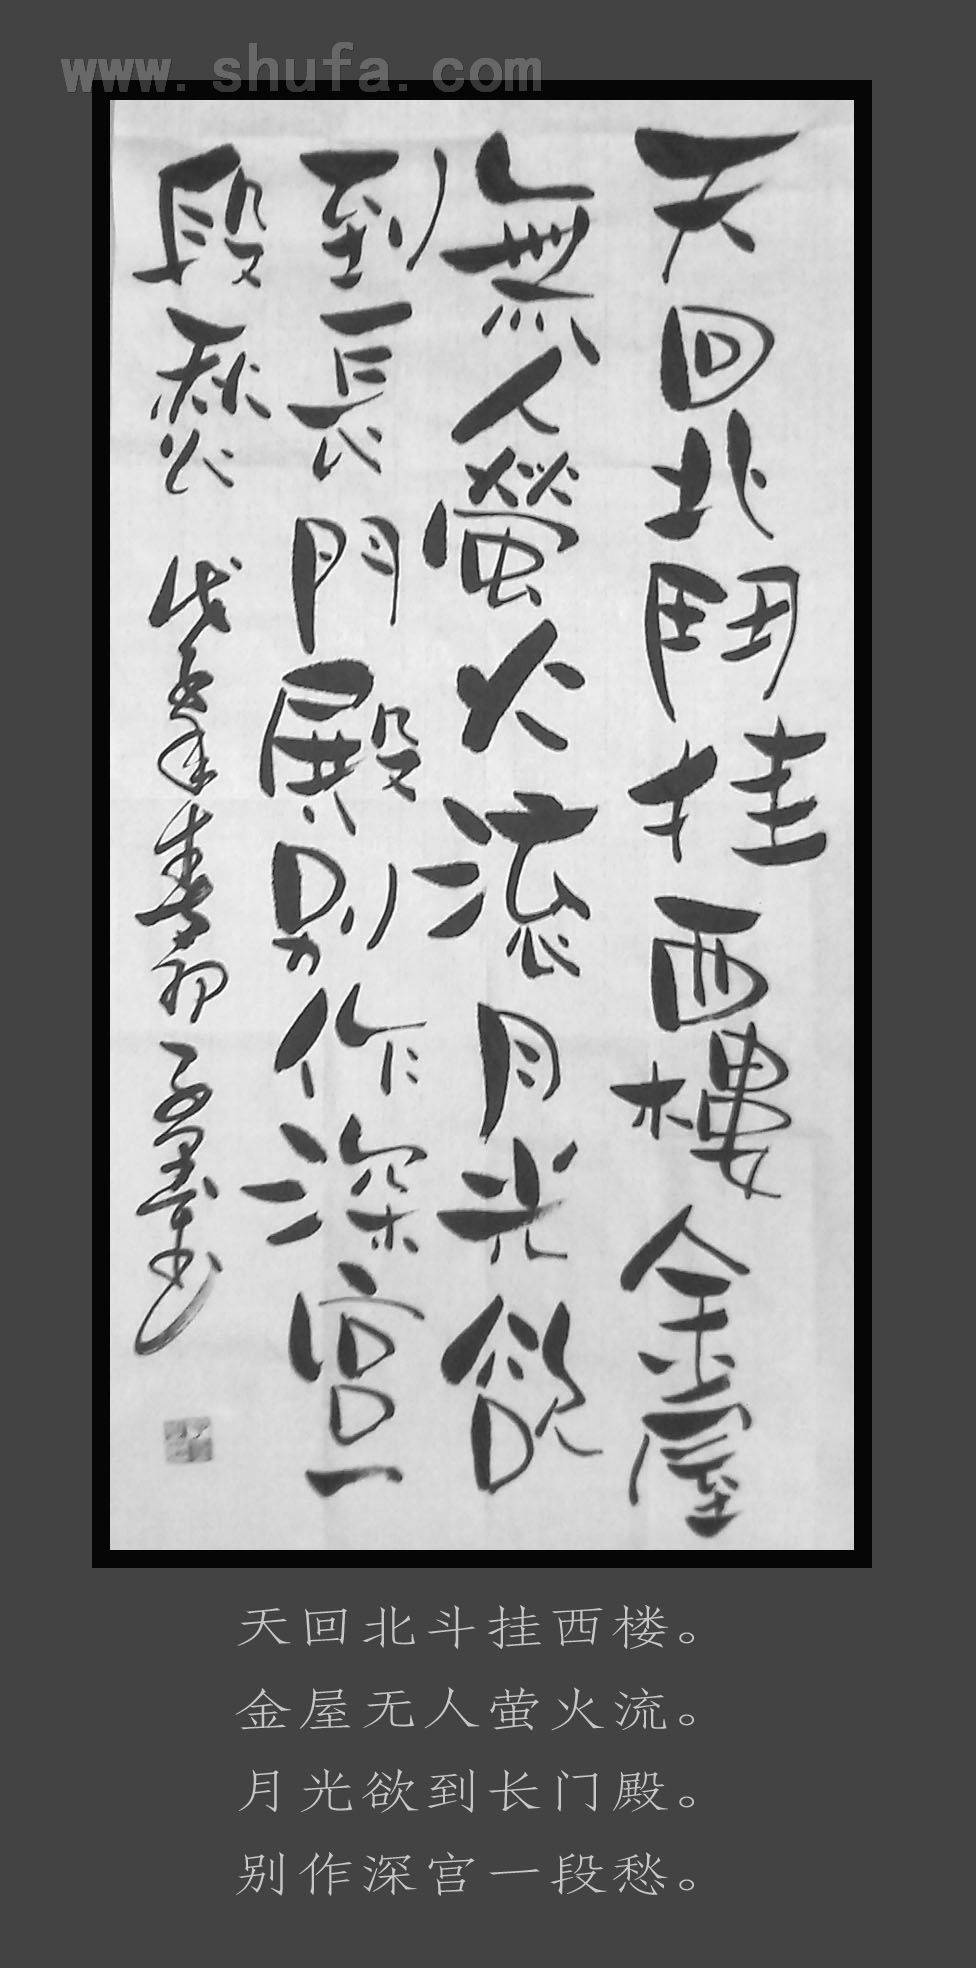 www.shufa.com
天回北鬥挂西樓金屋
無人螢火流月光欲
到長門殿别作深宫一
段愁 戊子年春節
天回北斗挂西楼。
金屋无人萤火流。
月光欲到长门殿。
别作深宫一段愁。